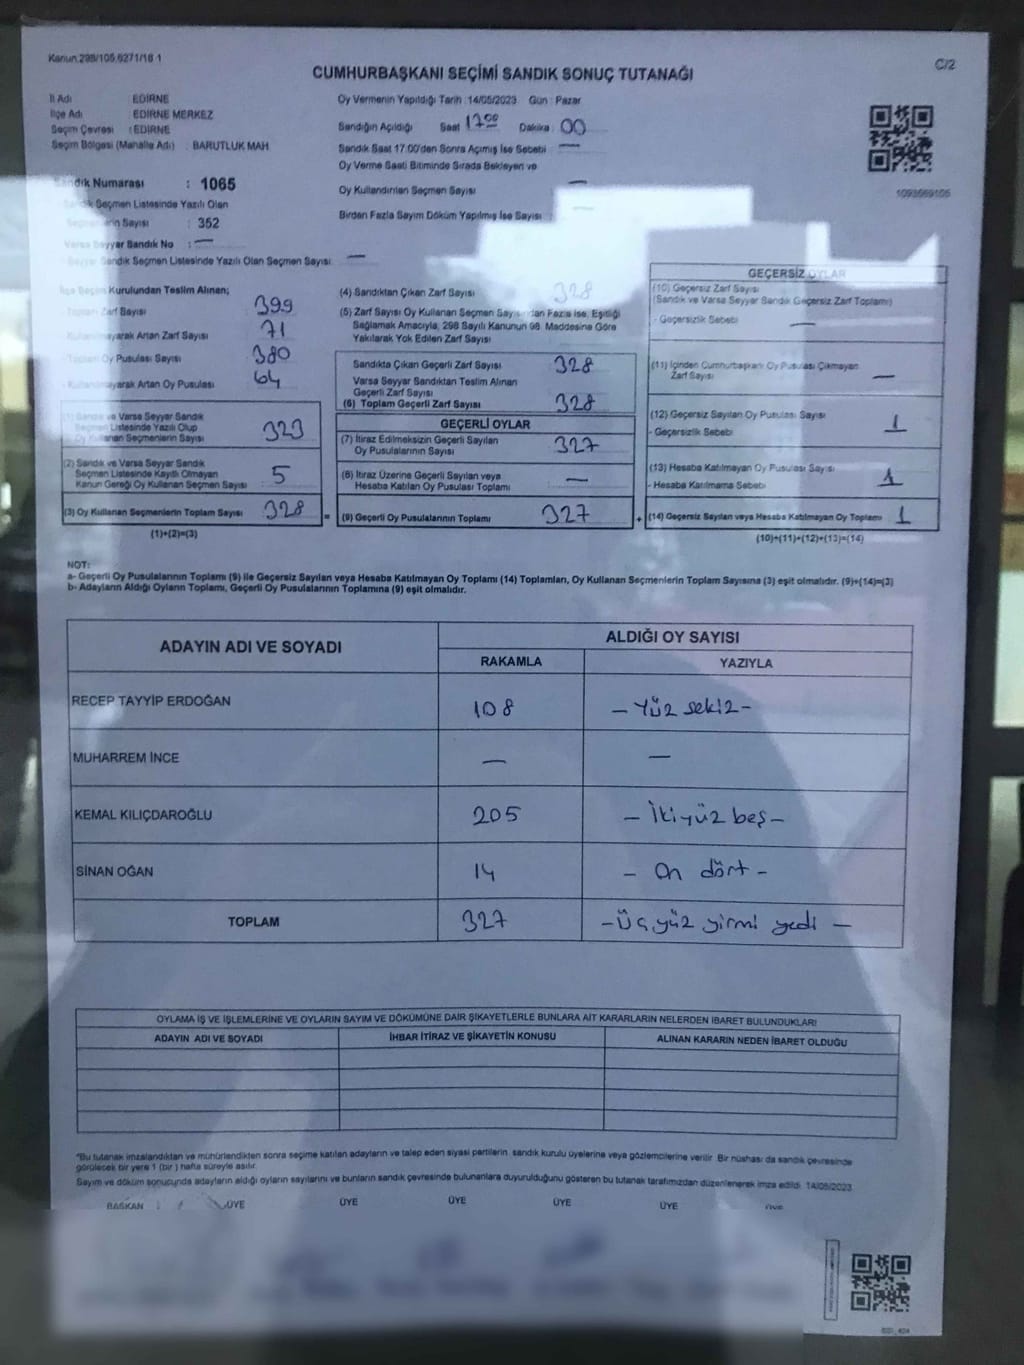 Kanun:298/105,6271/18 1
C/2
CUMHURBAŞKANI SEÇİMİ SANDIK SONUÇ TUTANAĞI
İl Adı EDİRNE
İlçe Adı EDİRNE MERKEZ
Seçim Çevresi : EDİRNE
Seçim Bölgesi (Mahalle Adı) : BARUTLUK MAH
Oy Vermenin Yapıldığı Tarih :14/05/2023 Gün : Pazar
Sandığın Açıldığı Saat 17:00 Dakika : 00
Sandık Saat 17.00'den Sonra Açılmış İse Sebebi : —
Oy Verme Saati Bitiminde Sırada Bekleyen ve
Oy Kullandırılan Seçmen Sayısı —
Birden Fazla Sayım Döküm Yapılmış İse Sayısı : —
1093669105
Sandık Numarası : 1065
Sandık Seçmen Listesinde Yazılı Olan
Seçmenlerin Sayısı : 352
Varsa Seyyar Sandık No : —
Seyyar Sandık Seçmen Listesinde Yazılı Olan Seçmen Sayısı: —
İlçe Seçim Kurulundan Teslim Alınan;
Toplam Zarf Sayısı : 399
- Kullanılmayarak Artan Zarf Sayısı : 71
- Toplam Oy Pusulası Sayısı : 380
- Kullanılmayarak Artan Oy Pusulası : 64
(1) Sandık ve Varsa Seyyar Sandık
Seçmen Listesinde Yazılı Olup
Oy Kullanan Seçmenlerin Sayısı : 323
(2) Sandık ve Varsa Seyyar Sandık
Seçmen Listesinde Kayıtlı Olmayan
Kanun Gereği Oy Kullanan Seçmen Sayısı : 5
(3) Oy Kullanan Seçmenlerin Toplam Sayısı : 328
(1)+(2)=(3)
(4) Sandıktan Çıkan Zarf Sayısı : 328
(5) Zarf Sayısı Oy Kullanan Seçmen Sayısından Fazla ise, Eşitliği
Sağlamak Amacıyla, 298 Sayılı Kanunun 98. Maddesine Göre
Yakılarak Yok Edilen Zarf Sayısı :
Sandıkta Çıkan Geçerli Zarf Sayısı : 328
Varsa Seyyar Sandıktan Teslim Alınan
Geçerli Zarf Sayısı
(6) Toplam Geçerli Zarf Sayısı : 328
GEÇERLİ OYLAR
(7) İtiraz Edilmeksizin Geçerli Sayılan
Oy Pusulalarının Sayısı : 327
(8) İtiraz Üzerine Geçerli Sayılan veya
Hesaba Katılan Oy Pusulası Toplamı : —
= (9) Geçerli Oy Pusulalarının Toplamı : 327
GEÇERSİZ OYLAR
(10) Geçersiz Zarf Sayısı
(Sandık ve Varsa Seyyar Sandık Geçersiz Zarf Toplamı)
- Geçersizlik Sebebi : —
(11) İçinden Cumhurbaşkanı Oy Pusulası Çıkmayan
Zarf Sayısı : —
(12) Geçersiz Sayılan Oy Pusulası Sayısı : 1
- Geçersizlik Sebebi :
(13) Hesaba Katılmayan Oy Pusulası Sayısı : 1
- Hesaba Katılmama Sebebi :
+ (14) Geçersiz Sayılan veya Hesaba Katılmayan Oy Toplamı : 1
(10)+(11)+(12)+(13)=(14)
NOT:
a- Geçerli Oy Pusulalarının Toplamı (9) ile Geçersiz Sayılan veya Hesaba Katılmayan Oy Toplamı (14) Toplamları, Oy Kullanan Seçmenlerin Toplam Sayısına (3) eşit olmalıdır. (9)+(14)=(3)
b- Adayların Aldığı Oyların Toplamı, Geçerli Oy Pusulalarının Toplamına (9) eşit olmalıdır.
ADAYIN ADI VE SOYADI ALDIĞI OY SAYISI
RAKAMLA YAZIYLA
RECEP TAYYİP ERDOĞAN 108 - Yüz sekiz -
MUHARREM İNCE — —
KEMAL KILIÇDAROĞLU 205 - İkiyüz beş -
SİNAN OĞAN 14 - On dört -
TOPLAM 327 - Üçyüz yirmi yedi -
OYLAMA İŞ VE İŞLEMLERİNE VE OYLARIN SAYIM VE DÖKÜMÜNE DAİR ŞİKAYETLERLE BUNLARA AİT KARARLARIN NELERDEN İBARET BULUNDUKLARI
ADAYIN ADI VE SOYADI İHBAR İTİRAZ VE ŞİKAYETİN KONUSU ALINAN KARARIN NEDEN İBARET OLDUĞU
*Bu tutanak imzalandıktan ve mühürlendikten sonra seçime katılan adayların ve talep eden siyasi partilerin sandık kurulu üyelerine veya gözlemcilerine verilir. Bir nüshası da sandık çevresinde
görülecek bir yere 1 (bir ) hafta süreyle asılır.
Sayım ve döküm sonucunda adayların aldığı oyların sayılarını ve bunların sandık çevresinde bulunanlara duyurulduğunu gösteren bu tutanak tarafımızdan düzenlenerek imza edildi. 14/05/2023
BAŞKAN ÜYE ÜYE ÜYE ÜYE ÜYE ÜYE